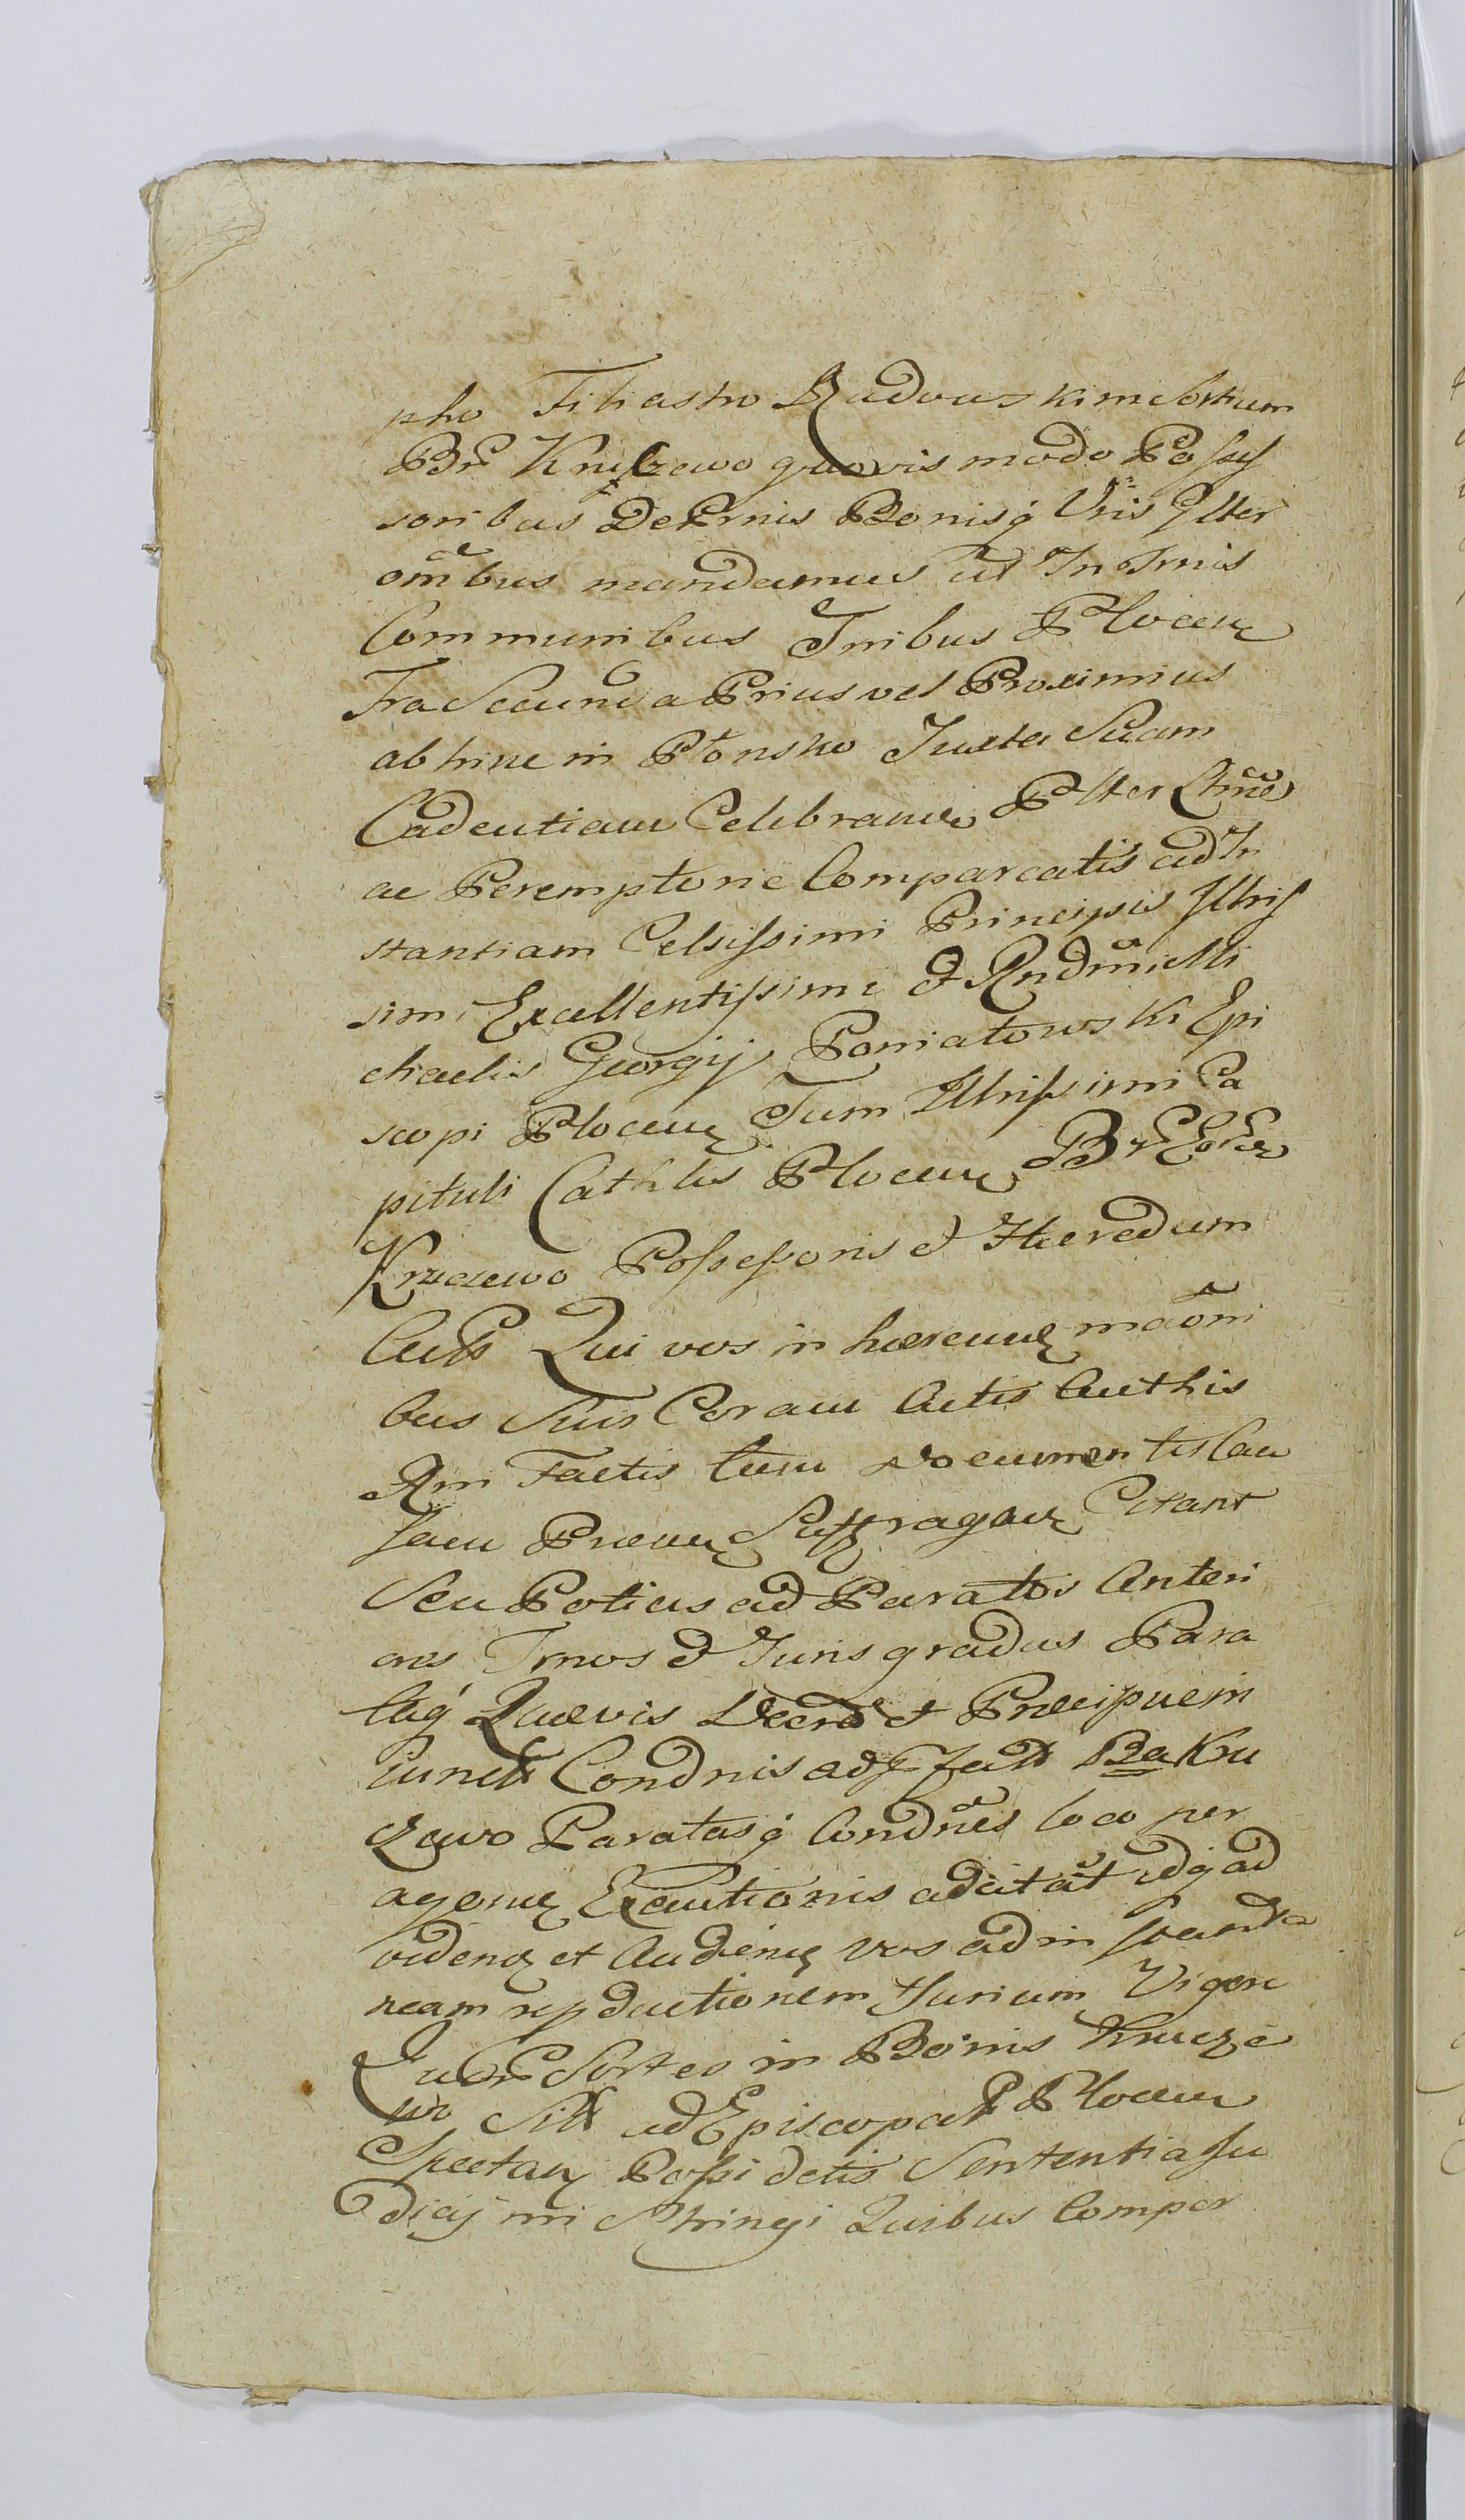 pho Filiastro Radowski in Sortium
Br̃ Kruczewo quovis modo Possess
soribus De Prnis Bonisq́ Vris Glter
om̃bus mandamus ut In Trnis
Communibus Trribus Plocen
Fra Secunda Prius vel Proximius
abhinc in Płonsko Juxta Suam
Cadentiam Celebranda Pltter
ac Peremptorie Compareatis ad In
stantiam Celsissimi Principis Jllris
simi Excellentissimi & Rndm̃i Mi
chaelis Georgij Poniatowski Epi
scopi Plocen Tum Jllrissimi Ca
pituli Cathlis Plocen
Kruczewo Possessoris & Haeredum
Qui vos in haerend mãoni
bus Suis Coram Actis Authis
Rm Factis tum documentis Cau
sam Praen Suffragan Citant
Seu Potius ad Paratos Anteri
ores Trnos & Juris gradus Para
taq́ Quaevis Decrã et Praecipue in
iunct Condnis ad Ba Kru
czewo Paratasq́ Condñes loco per
agend Executionis adcitãt idq ad
videnḑ et Audienḑ vos ad in
neam repductionem Jurium Vigore
Sortes in Bonis Krucze
wo Sitt ad Episcopat Plocen
Spectan Possidetis Sententia Ju
dicij ni Sthringi Quibus Comper